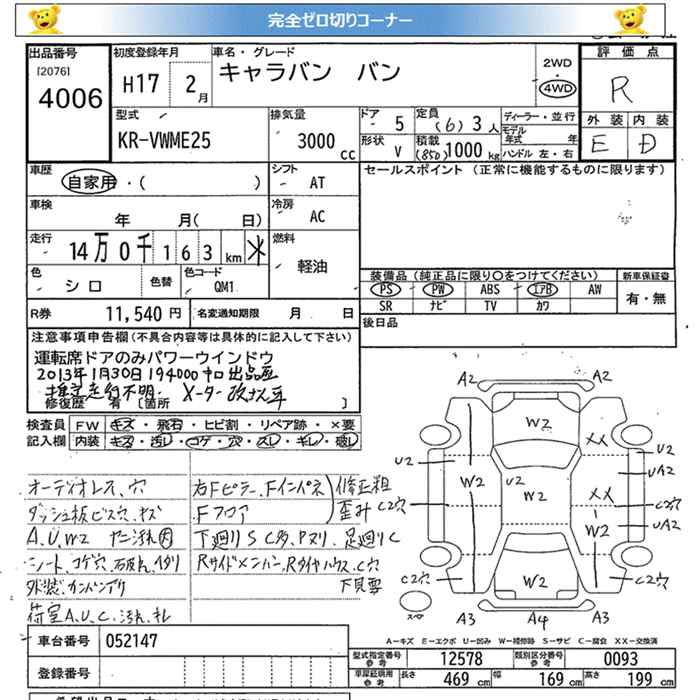 完全ゼロ切りコーナー
出品番号 初度登録年月 車名・グレード 評価点
[2076]
4006 H17 2月 キャラバン バン 2WD・4WD R
型式 排気量 ドア 定員 ディーラー・並行 外装 内装
KR-VWME25 3000cc 5 (6)3人 モデル年式 年 E D
形状 積載
V (850)1000kg ハンドル 左・右
車歴 シフト セールスポイント (正常に機能するものに限ります)
自家用・( ) AT
車検 冷房
年 月( 日) AC
走行 燃料
14万0千163km 軽油
色 色替 色コード 装備品(純正品に限り○をつけてください) 新車保証書
シロ QM1 PS PW ABS エアB AW 有・無
SR ナビ TV カワ
R券 11,540円 名変通知期限 月 日 後日品
注意事項申告欄(不具合内容等は具体的に記入して下さい)
運転席ドアのみパワーウインドウ
2013年1月30日194000キロ出品歴
走行不明
修復歴 有 〔箇所 〕
検査員 FW キズ・飛石・ヒビ割・リペア跡・×要
記入欄 内装 キズ・汚レ・コゲ・穴・スレ・キレ・破レ
オーディオレス、穴
ダッシュ板ビス穴、キズ
A、U、W2
シート、コゲ穴
外装、カンバン
荷室A、U、C
右Fピラー、Fインパネ 修正粗
Fフロア 歪み
下廻りS C多、Pヌリ、足廻りC
Rサイドメンバー、Rタイヤハウス、C穴
下見要
A2 A2
W2 XX
U2 U2
W2 U2 W2 XX UA2
C2穴 C2穴
W2 UA2
C2穴 W2 C2穴
スペアー
A3 A4 A3
A−キズ E−エクボ U−凹み W−補修跡 S−サビ C−腐食 XX−交換済
車台番号 052147
型式指定番号 参考 12578 類別区分番号 参考 0093
登録番号 車庫証明用 参考 長さ 469cm 幅 169cm 高さ 199cm